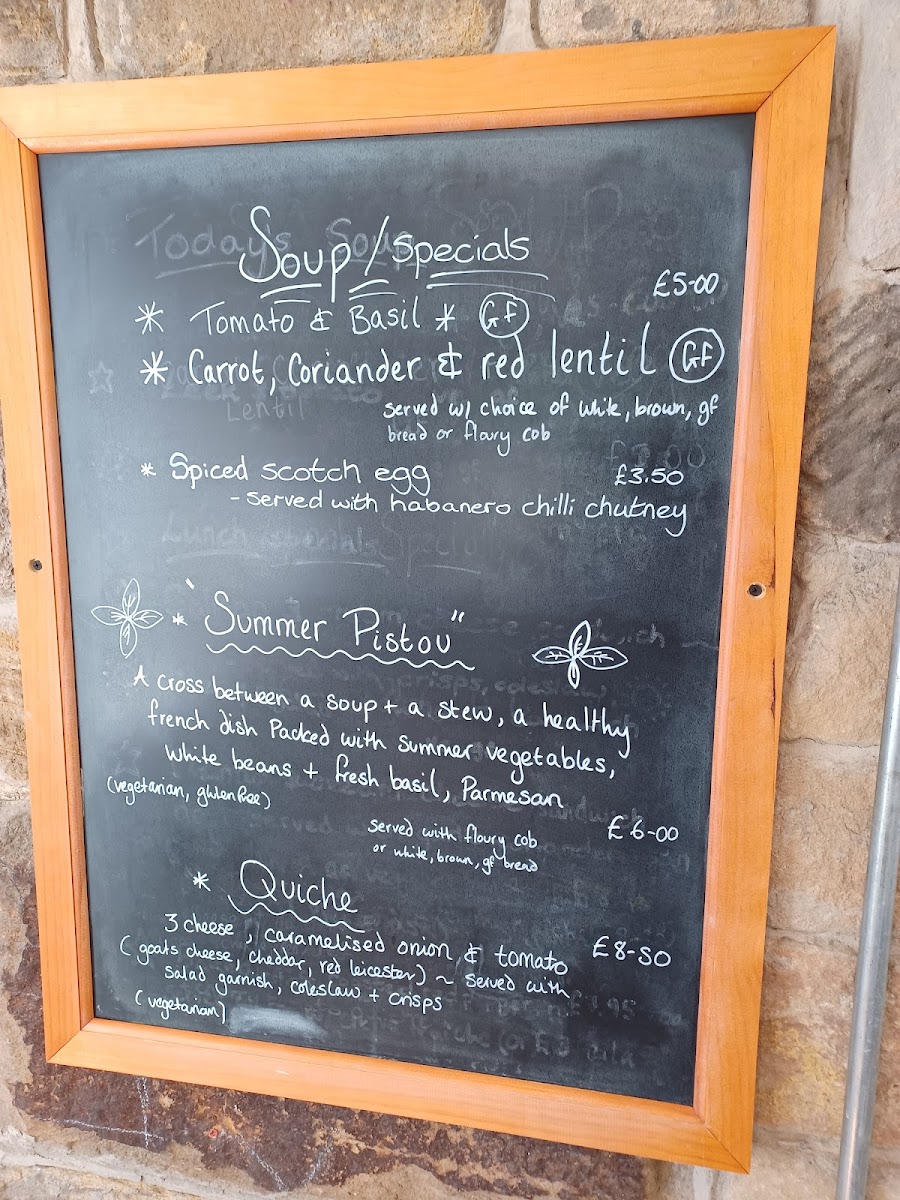 Soup/Specials
£5-00
* Tomato & Basil * GF
* Carrot, Coriander & red lentil GF
served w/ choice of white, brown, gf
bread or floury cob
* Spiced scotch egg £3.50
- served with habanero chilli chutney
* "Summer Pistou"
A cross between a soup + a stew, a healthy
french dish Packed with summer vegetables,
white beans + fresh basil, Parmesan
(vegetarian, gluten free)
£6-00
served with floury cob
or white, brown, gf bread
* Quiche
3 cheese, caramelised onion & tomato £8-50
(goats cheese, cheddar, red leicester) ~ served with
salad garnish, coleslaw + crisps
(vegetarian)